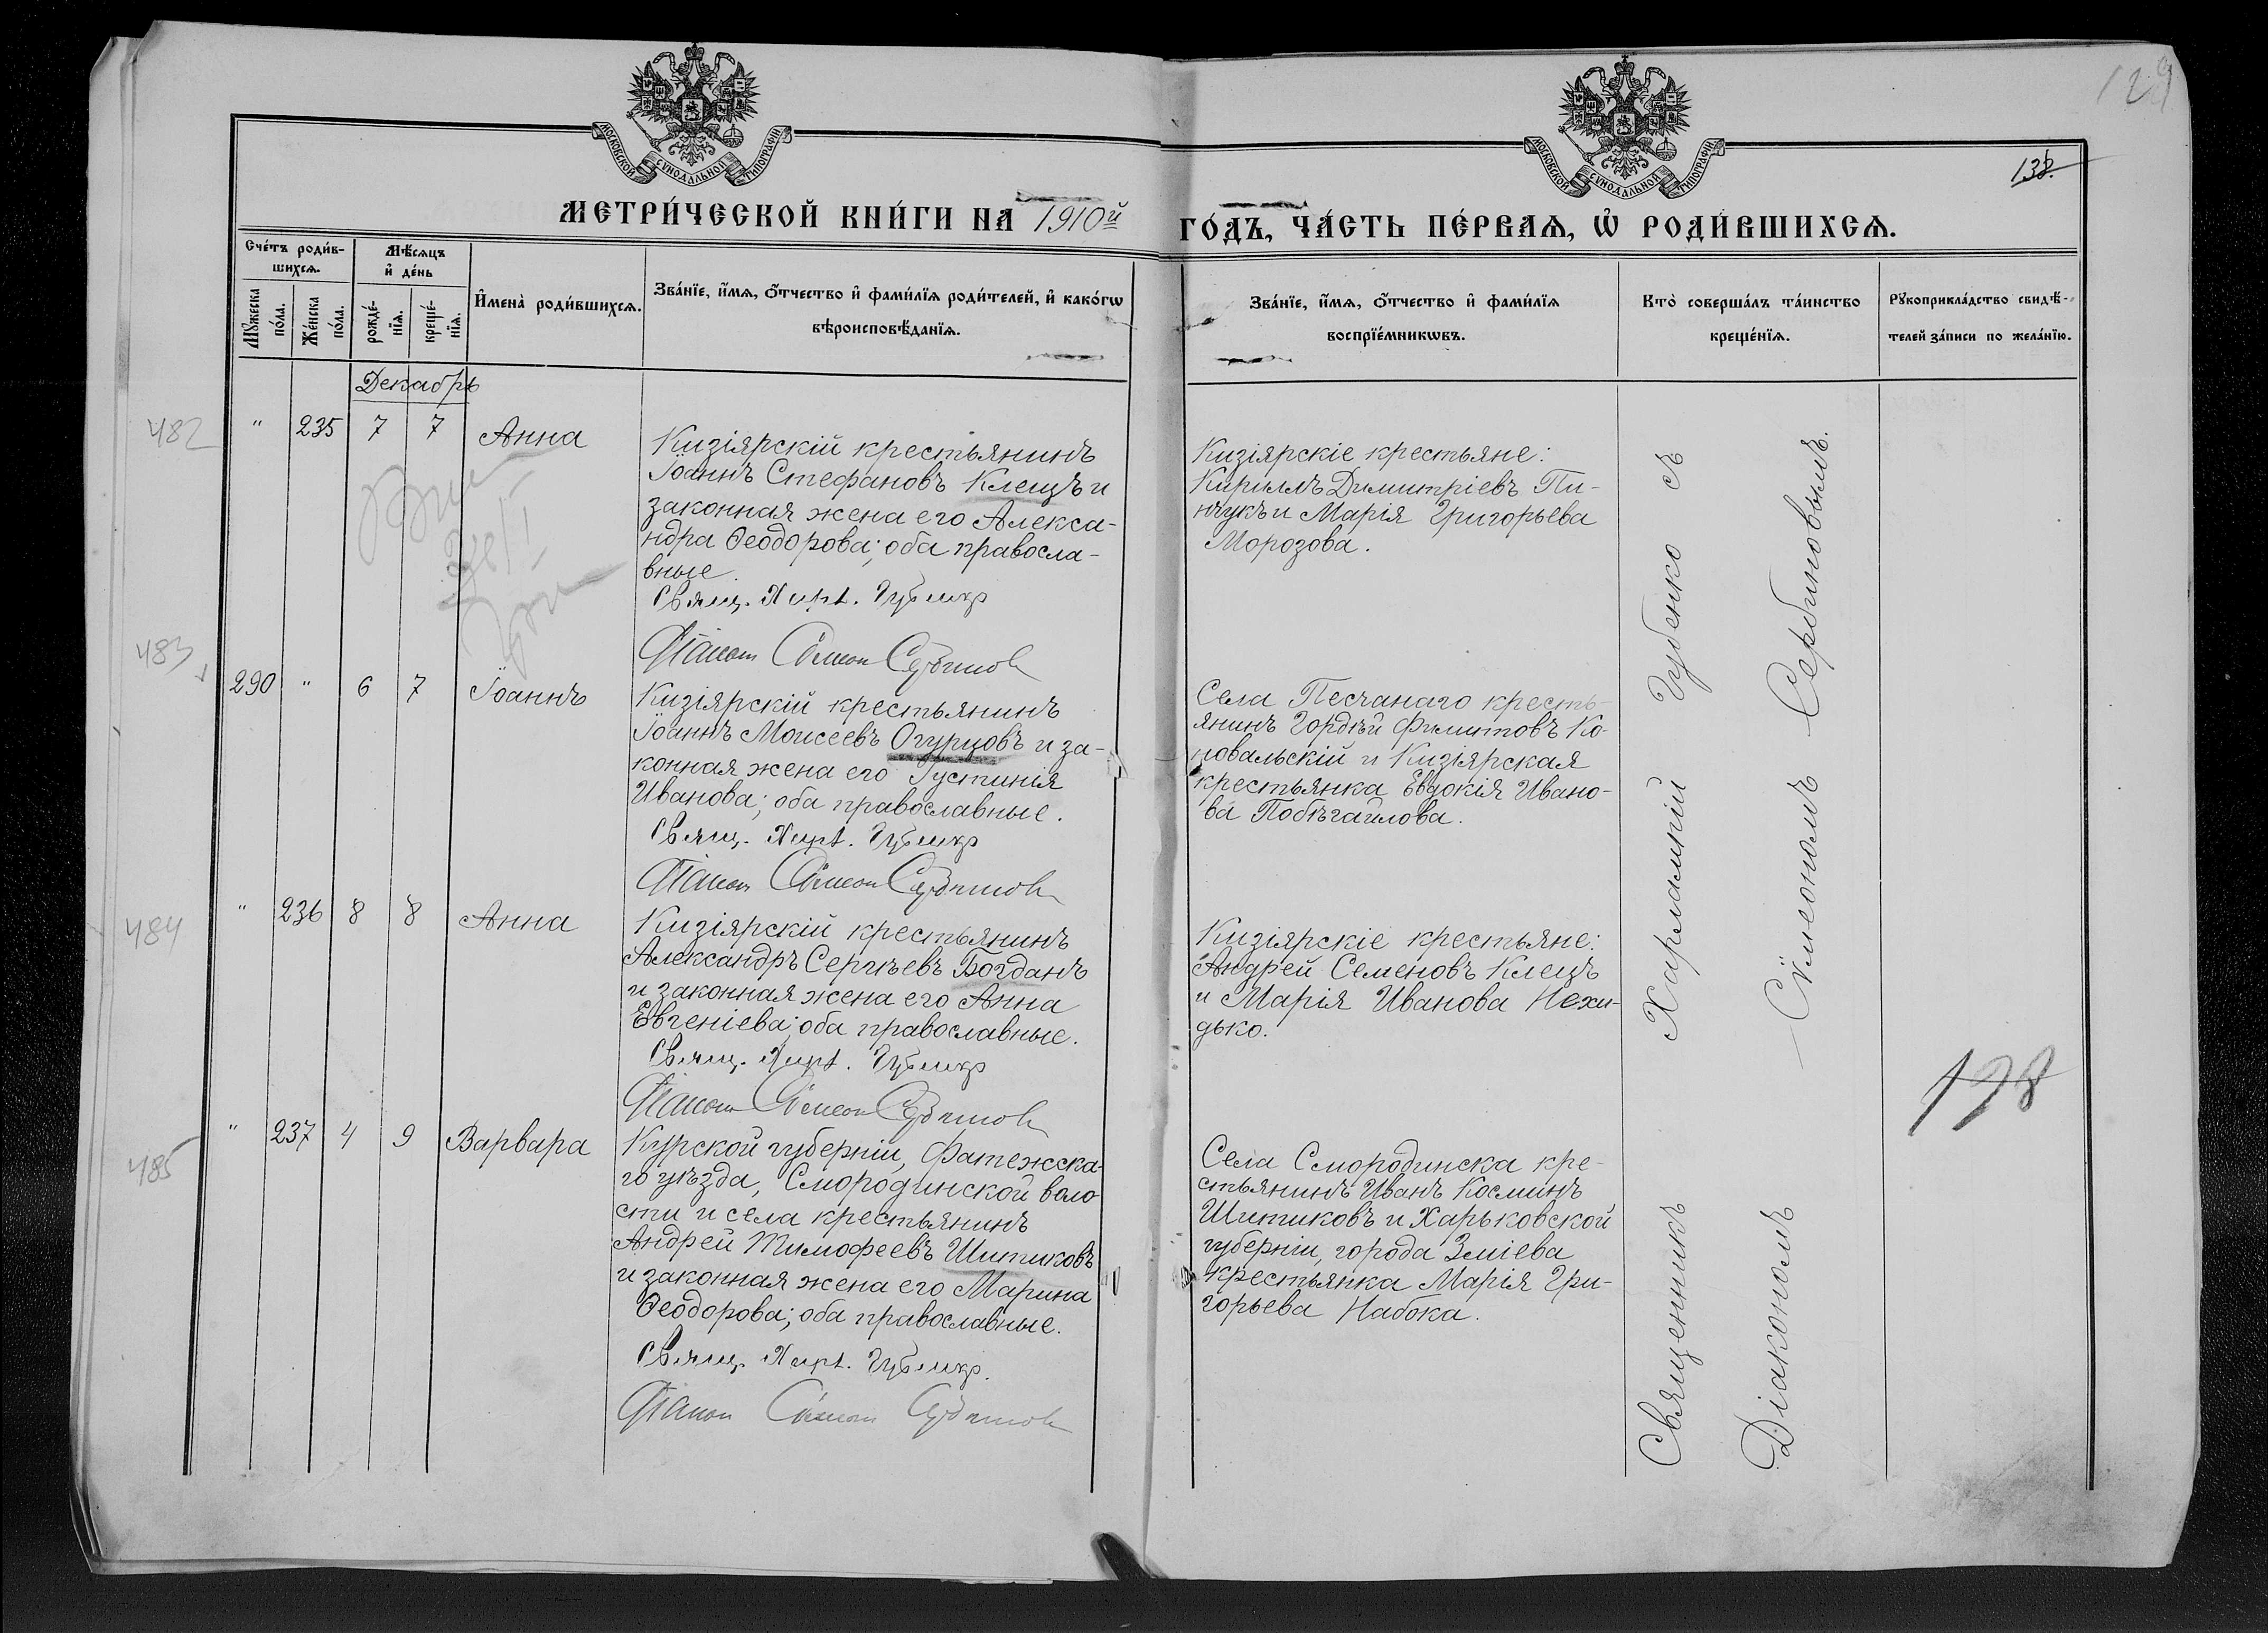 МОСКОВСКОЙ СѴНОДАЛЬНОЙ ТИПОГРАФІИ
МОСКОВСКОЙ СѴНОДАЛЬНОЙ ТИПОГРАФІИ
129
138.
МЕТРИ́ЧЕСКОЙ КНИ́ГИ НА 1910й
ГО́ДЪ, ЧА́СТЬ ПЕ́РВАѦ, Ѡ҆ РОДИ́ВШИХСѦ.
Сче́тъ роди́в-
шихсѧ.
Мѣ́сѧцъ
и҆ де́нь
Мꙋ́жеска
по́ла.
Же́нска
по́ла.
рожде́-
нїѧ.
креще́-
нїѧ.
И҆мена̀ роди́вшихсѧ.
Зва́нїе, и҆́мѧ, ѻ҆́тчество и҆ фами́лїѧ роди́телей, и҆ како́гѡ
вѣроисповѣ́данїѧ.
Зва́нїе, и҆́мѧ, ѻ҆́тчество и҆ фами́лїѧ
воспрїе́мникѡвъ.
Кто̀ соверша́лъ та́инство
креще́нїѧ.
Рꙋкоприкла́дство свидѣ́-
телей за́писи по жела́нїю.
Декабрь
482
" 235 7 7 Анна
Кизіярскій крестьянинъ
Іоаннъ Стефановъ Клецъ и
законная жена его Алекса-
ндра Ѳеодорова; оба правосла-
вные.
Свящ. Хар. Губенко
Діакон Сѵмеон Сербинов
Кизіярскіе крестьяне:
Кириллъ Димитріевъ Пи-
нчукъ и Марія Григорьева
Морозова.
483
290 " 6 7 Іоаннъ
Кизіярскій крестьянинъ
Іоаннъ Моисеевъ Огурцовъ и за-
конная жена его Іустинія
Иванова; оба православные.
Свящ. Хар. Губенко
Діакон Сѵмеон Сербинов
Села Песчанаго кресть-
янинъ Гордѣй Филипповъ Ко-
новальскій и Кизіярская
крестьянка Евдокія Ивано-
ва Побѣгайлова.
484
" 236 8 8 Анна
Кизіярскій крестьянинъ
Александръ Сергѣевъ Богданъ
и законная жена его Анна
Евгеніева; оба православные.
Свящ. Хар. Губенко
Діакон Сѵмеон Сербинов
Кизіярскіе крестьяне:
Андрей Семеновъ Клецъ
и Марія Иванова Нехи-
дько.
485
" 237 4 9 Варвара
Курской губерніи, Фатежска-
го уѣзда, Смородинской воло
сти и села крестьянинъ
Андрей Тимофеевъ Шитиковъ
и законная жена его Марина
Ѳеодорова; оба православные.
Свящ. Хар. Губенко.
Діакон Сѵмеон Сербинов
Села Смородинска кре-
стьянинъ Иванъ Косминъ
Шитиковъ и Харьковской
губерніи, города Зміева
крестьянка Марія Гри-
горьева Набока.
Священникъ Харлампій Губенко съ
Діакономъ Сѵмеономъ Сербиновымъ.
198